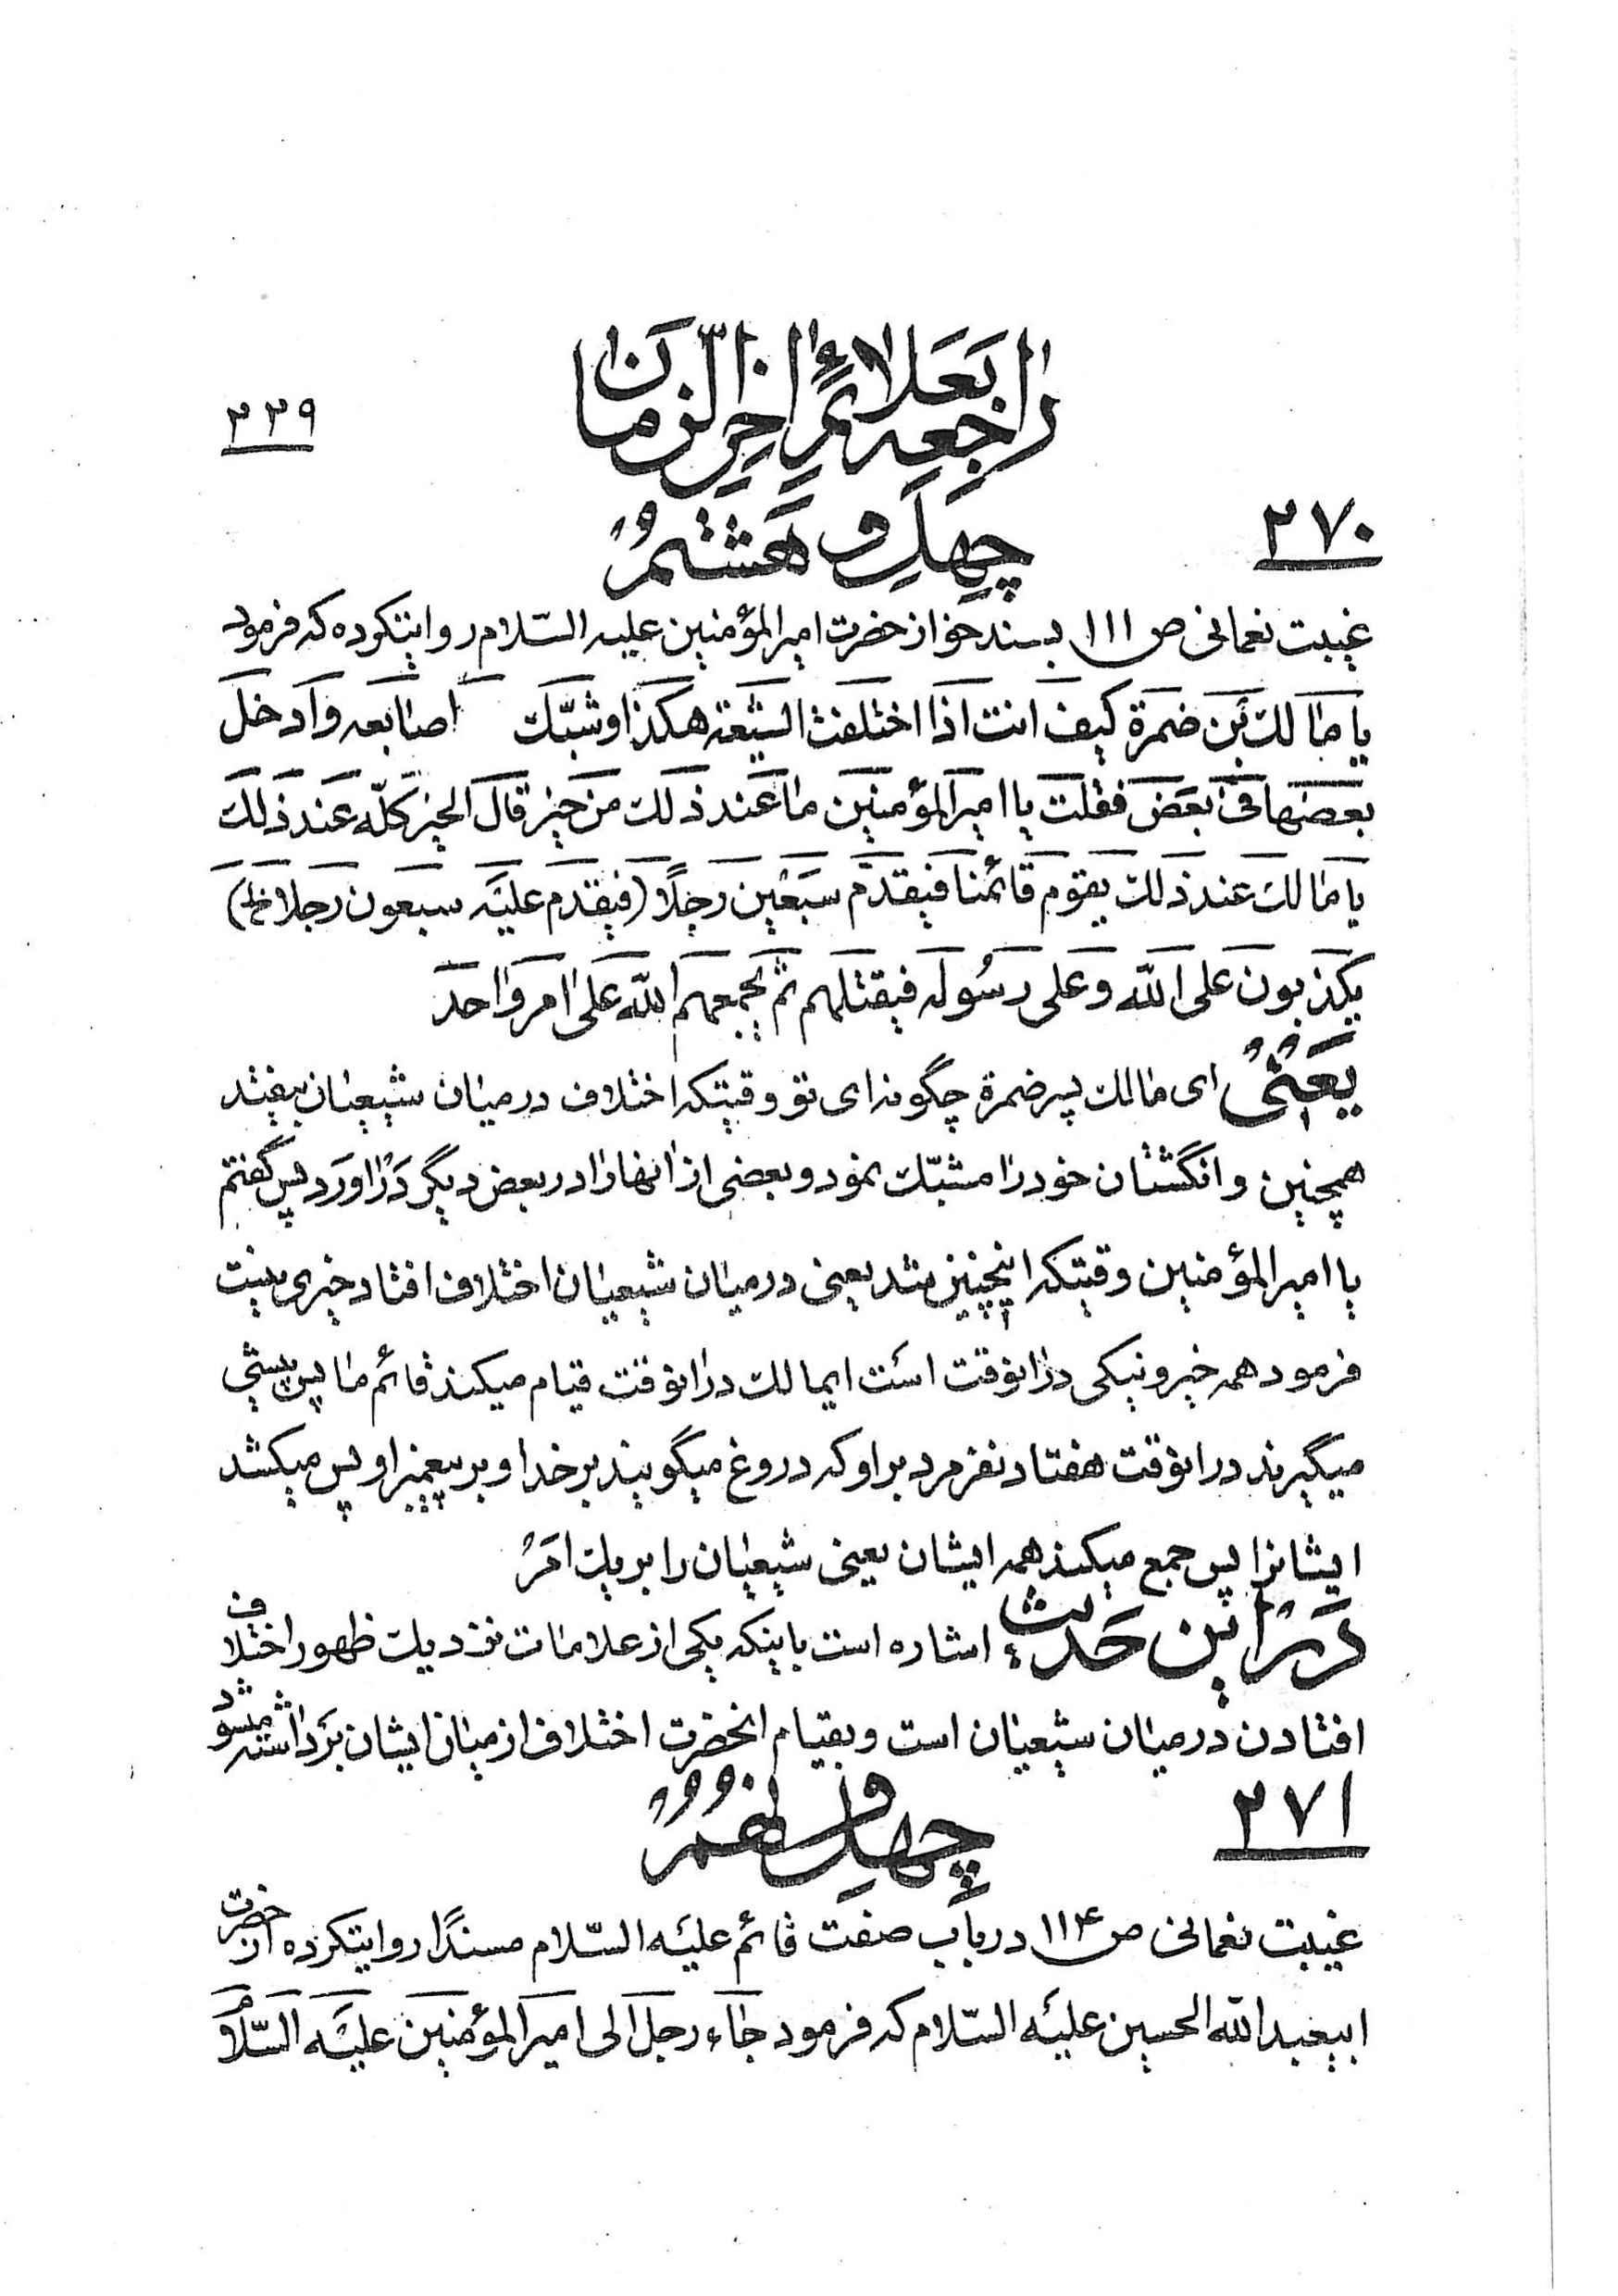 راجع بعلائم اخرالزمان
۳۳۹
۲۷۰
چهل و هشتم
غیبت نعمانی ص ۱۱۱ بسند خو از حضرت امیرالمؤمنین علیه السّلام روایتکرده که فرمود
یا مالك بن ضمرة کیف انت اذا اختلفت الشیعة هکذا و شبّك اصابعه و ادخل
بعضها فی بعض فقلت یا امیرالمؤمنین ما عند ذلك من خیر قال الخیر کلّه عند ذلك
یا مالك عند ذلك یقوم قائمنا فیقدّم سبعین رجلًا (فیقدم علیه سبعون رجلا خ‌ل)
یکذبون علی الله و علی رسوله فیقتلهم ثم یجمعهم الله علی امر واحد
یعنی ای مالك پسر ضمرة چگونه‌ای تو وقتیکه اختلاف در میان شیعیان بیفتد
همچنین و انگشتان خود را مشبّك نمود و بعضی از انها را در بعض دیگر دراورد پس گفتم
یا امیرالمؤمنین وقتیکه اینچنین شد یعنی در میان شیعیان اختلاف افتاد خیری نیست
فرمود همه خیر و نیکی در انوقت است ایمالك در انوقت قیام میکند قائم ما پس پیشی
میگیرند در انوقت هفتاد نفر مرد بر او که دروغ میگویند بر خدا و بر پیغمبر او پس میکشد
ایشانرا پس جمع میکند همه ایشان یعنی شیعیان را بر یك امر
در این حدیث اشاره است باینکه یکی از علامات نزدیك ظهور اختلاف
افتادن در میان شیعیان است و بقیام انحضرت اختلاف از میان ایشان برداشته میشود
۲۷۱
چهل و نهم
غیبت نعمانی ص ۱۱۴ در باب صفت قائم علیه السّلام مسندًا روایتکرده از حضرت
ابیعبدالله الحسین علیه السّلام که فرمود جاء رجل الی امیرالمؤمنین علیه السّلام